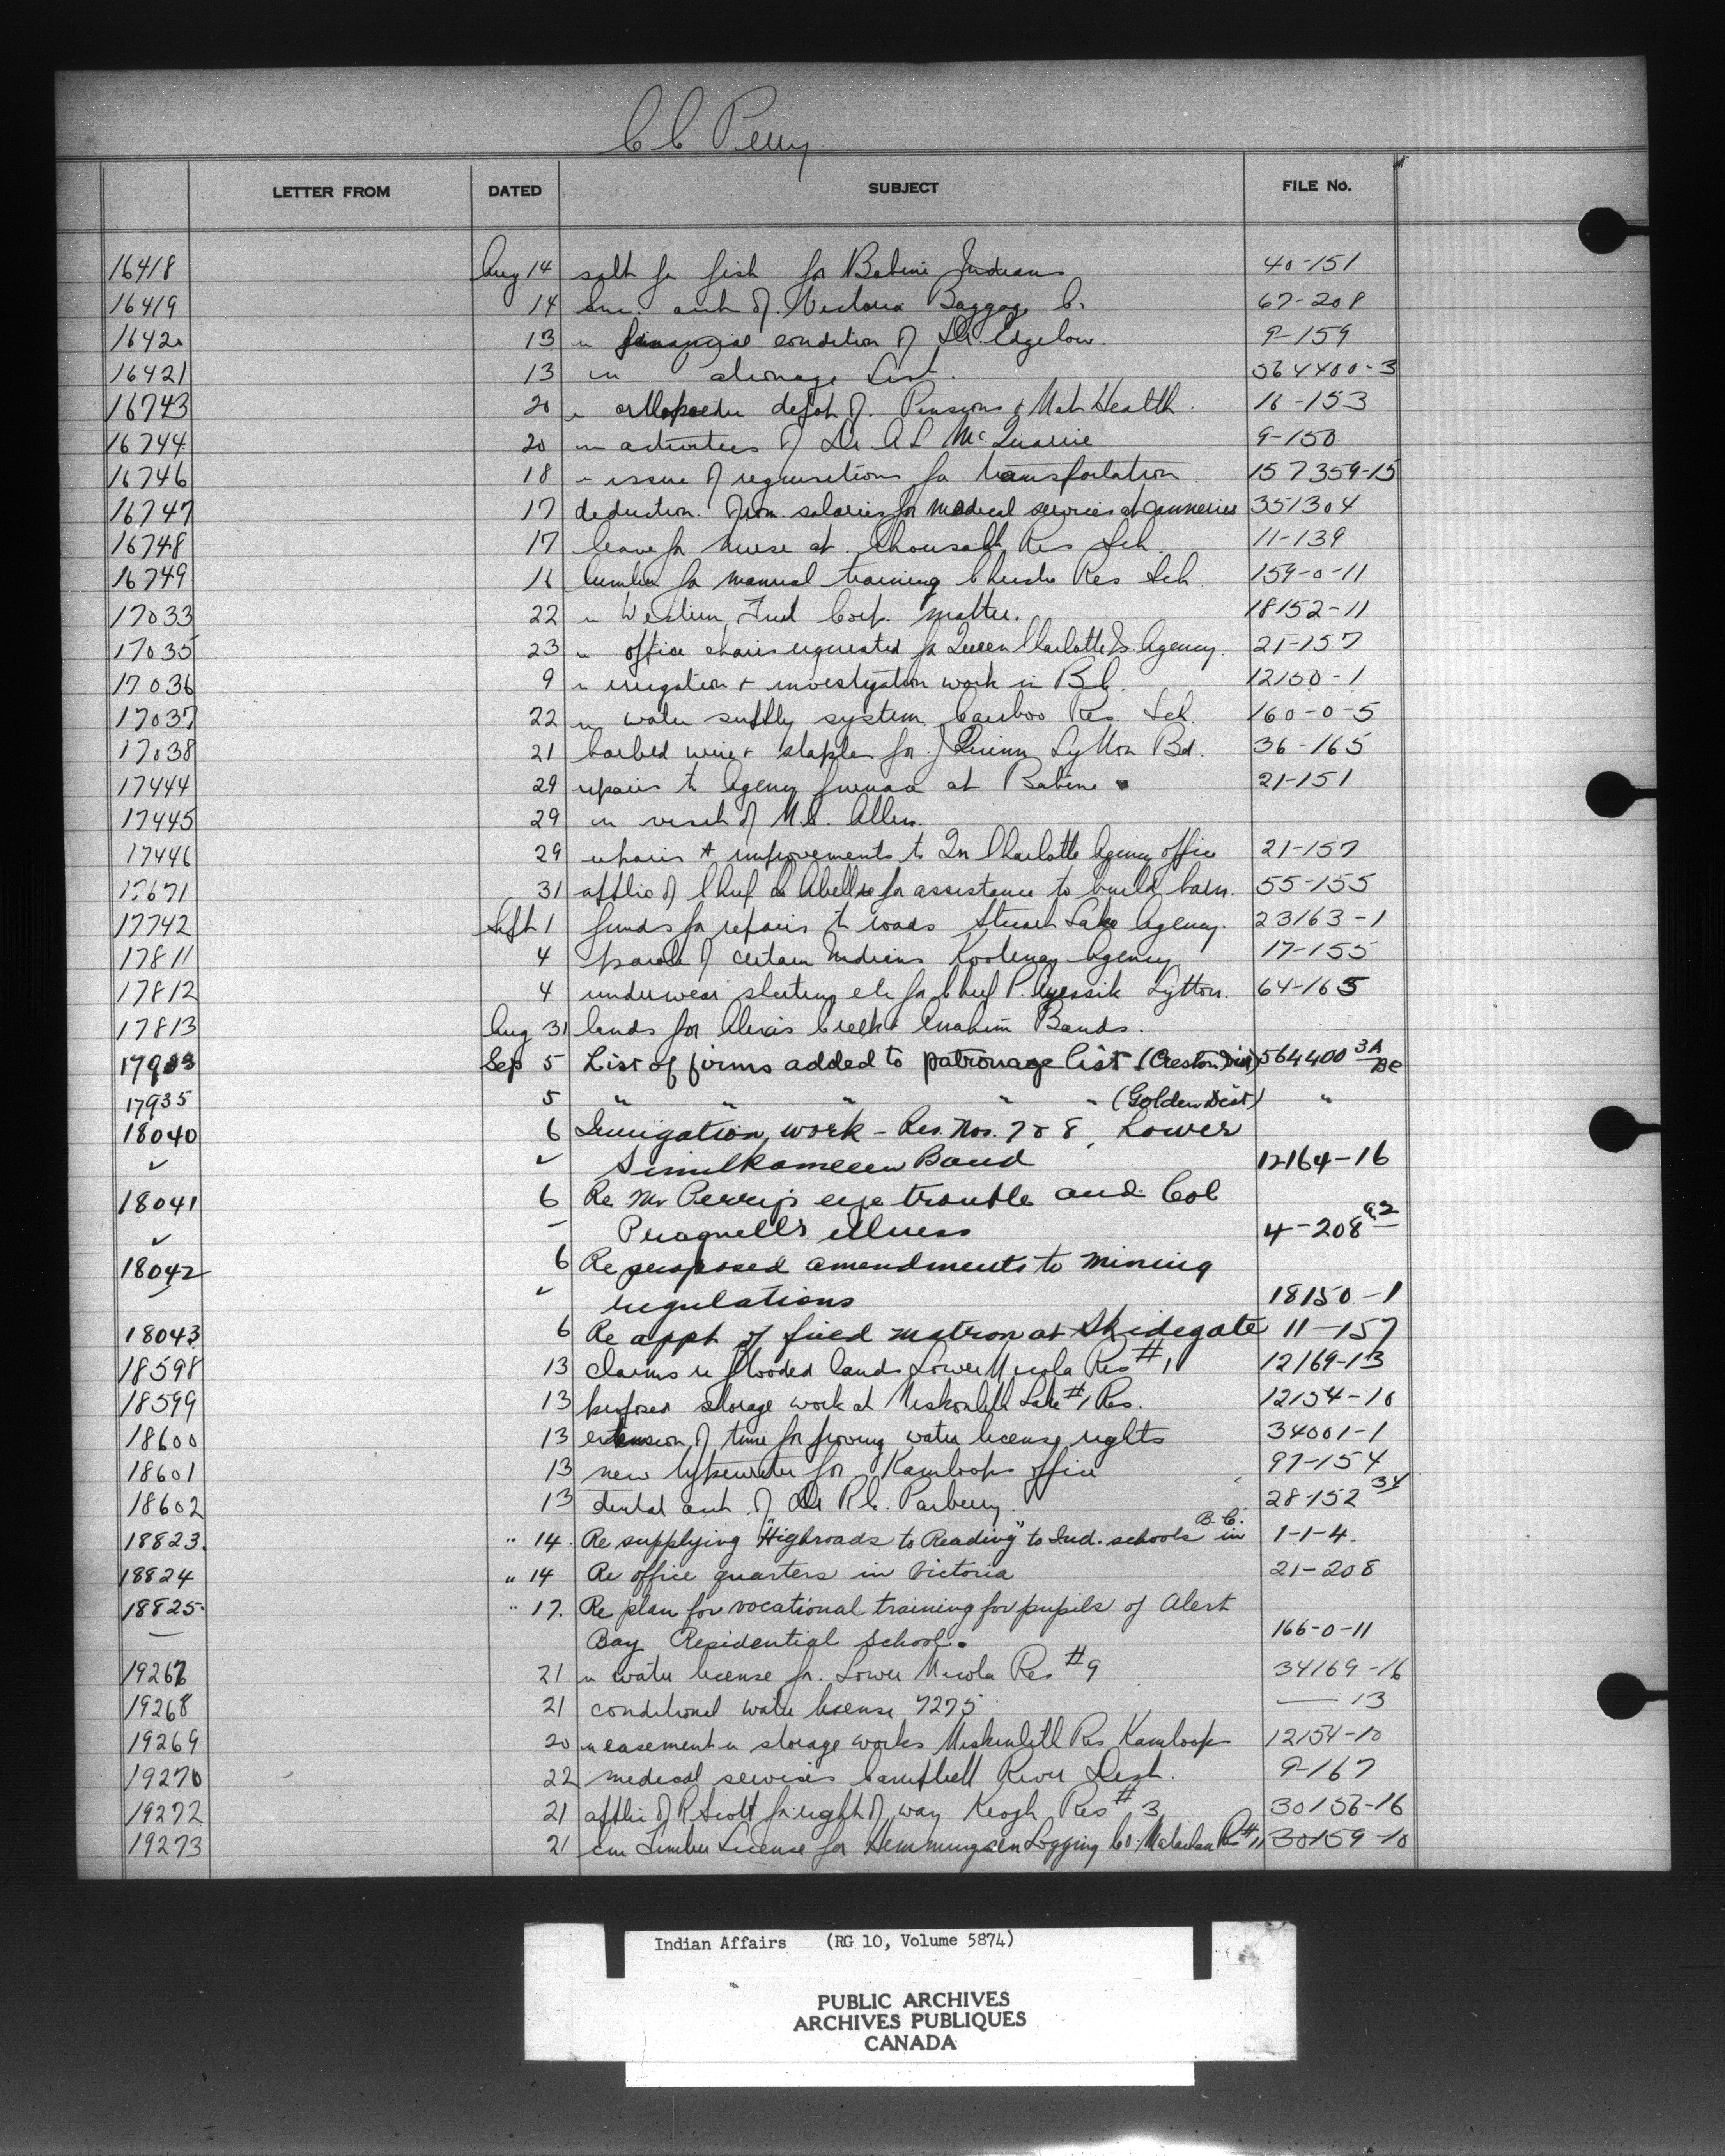 C C Perry
LETTER FROM DATED SUBJECT FILE No.
16418 Aug 14 salt for fish for Babine Indians 40-151
16419 14 acct of Victoria Baggage Co. 67-208
1642. 13 re financial condition of Dr. Edgelow. 9-159
16421 13 List. 564400-3
16743 20 re orthopaedic depot of Pensions & Nat Health. 16-153
16744 20 re activities of Dr A L McQuarrie 9-150
16746 18 re issue of requisitions for transportation 157359-15
16747 17 deduction from salaries for medical services at canneries 351304
16748 17 leave for nurse at Res Sch. 11-139
16749 16 lumber for manual training Res Sch. 159-0-11
17033 22 re Western Fuel Corp. matter. 18152-11
17035 23 re office chairs requested for Queen Charlotte Is. Agency. 21-157
17036 9 re irrigation & investigation work in B.C. 12150-1
17037 22 re water supply system Cariboo Res. Sch. 160-0-5
17038 21 barbed wire & staples for J Quinn Lytton Bd. 36-165
17444 29 repairs to Agency furnace at Babine 21-151
17445 29 re visit of M.C. Allen.
17446 29 repairs & improvements to Qn Charlotte Agency office 21-157
17671 31 applic of Chief for assistance to build barn. 55-155
17742 Sept 1 funds for repairs to roads Stuart Lake Agency. 23163-1
17811 4 parole of certain Indians Kootenay Agency 17-155
17812 4 underwear sheeting etc for Chief P. Lytton. 64-165
17813 Aug 31 lands for Alexis Creek & Anahim Bands.
17933 Sep 5 List of firms added to patronage list (Creston Dist) 564400 3A
17935 5 " " " " " (Golden Dist) "
18040 6 Irrigation work - Res. Nos. 7 & 8, Lower
✓ ✓ Similkameen Band 12164-16
18041 6 Re Mr Perry's eye trouble and Col
✓ - Pragnell's illness 4-208
18042 6 Re proposed amendments to mining
✓ regulations 18150-1
18043 6 Re appt of field matron at Skidegate 11-157
18598 13 claims re flooded lands Lower Nicola Res #1 12169-13
18599 13 proposed storage work at Neskonlith Lake #1 Res. 12154-10
18600 13 extension of time for proving water license rights 34001-1
18601 13 new typewriter for Kamloops office 97-154
18602 13 dental acct. of Dr R.C. Parberry. 28-152 34
18823. " 14. Re supplying "Highroads to Reading" to Ind. schools in B.C. 1-1-4.
18824 " 14 Re office quarters in Victoria 21-208
18825. " 17. Re plan for vocational training for pupils of Alert
Bay Residential School. 166-0-11
19267 21 re water license for Lower Nicola Res #9 34169-16
19268 21 conditional water license 7275 — 13
19269 20 re easement re storage works Neskonlith Res Kamloops 12154-10
19270 22 medical services Campbell River Dist. 9-167
19272 21 applic of R Scott for right of way Keogh Res #3 30156-16
19273 21 Timber License for Hemmingsen Logging Co. 30159-10
Indian Affairs (RG 10, Volume 5874)
PUBLIC ARCHIVES
ARCHIVES PUBLIQUES
CANADA